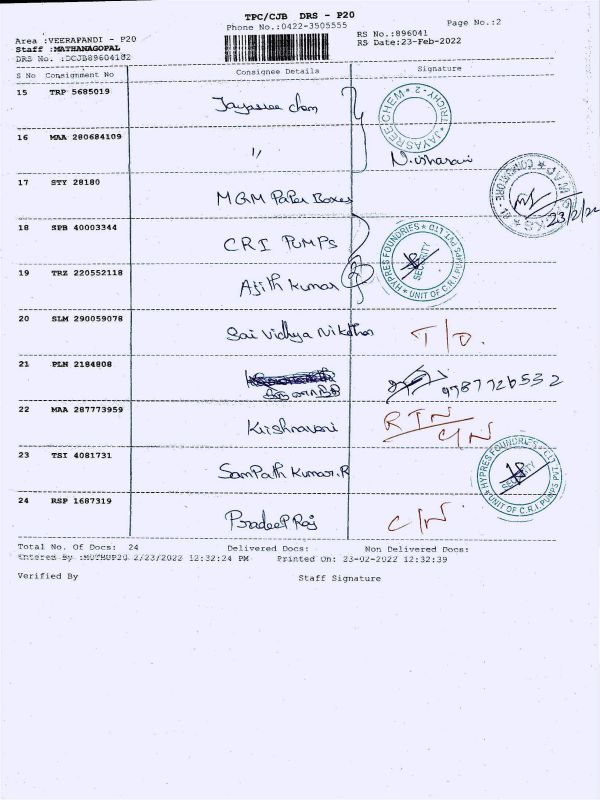 TPC/CJB DRS - P20
Phone No.:0422-3505555
Page No.:2
Area :VEERAPANDI - P20
RS No.:896041
Staff :MATHANAGOPAL
RS Date:23-Feb-2022
DRS No. :DCJB89604102
S No Consignment No Consignee Details Signature
15 TRP 5685019 Jayasree chem
JAYASREE CHEM * TRICHY - 2 *
16 MAA 280684109 "
17 STY 28180 MGM Paper Boxes
23/2/22
18 SPB 40003344 CRI PUMPS
HYPRES FOUNDRIES * UNIT OF C.R.I. PUMPS PVT LTD *
SECURITY
19 TRZ 220552118 Ajith Kumar
20 SLM 290059078 Sai Vidhya Nikethan T/O.
21 PLN 2184808 9787726532
22 MAA 287773959 Krishnaveni RTN C/N
23 TSI 4081731 Sampath Kumar.R
HYPRES FOUNDRIES * UNIT OF C.R.I. PUMPS PVT LTD *
SECURITY
24 RSP 1687319 Pradeep Raj C/N
Total No. Of Docs: 24 Delivered Docs: Non Delivered Docs:
Entered By :MUTHUP20 2/23/2022 12:32:24 PM Printed On: 23-02-2022 12:32:39
Verified By Staff Signature